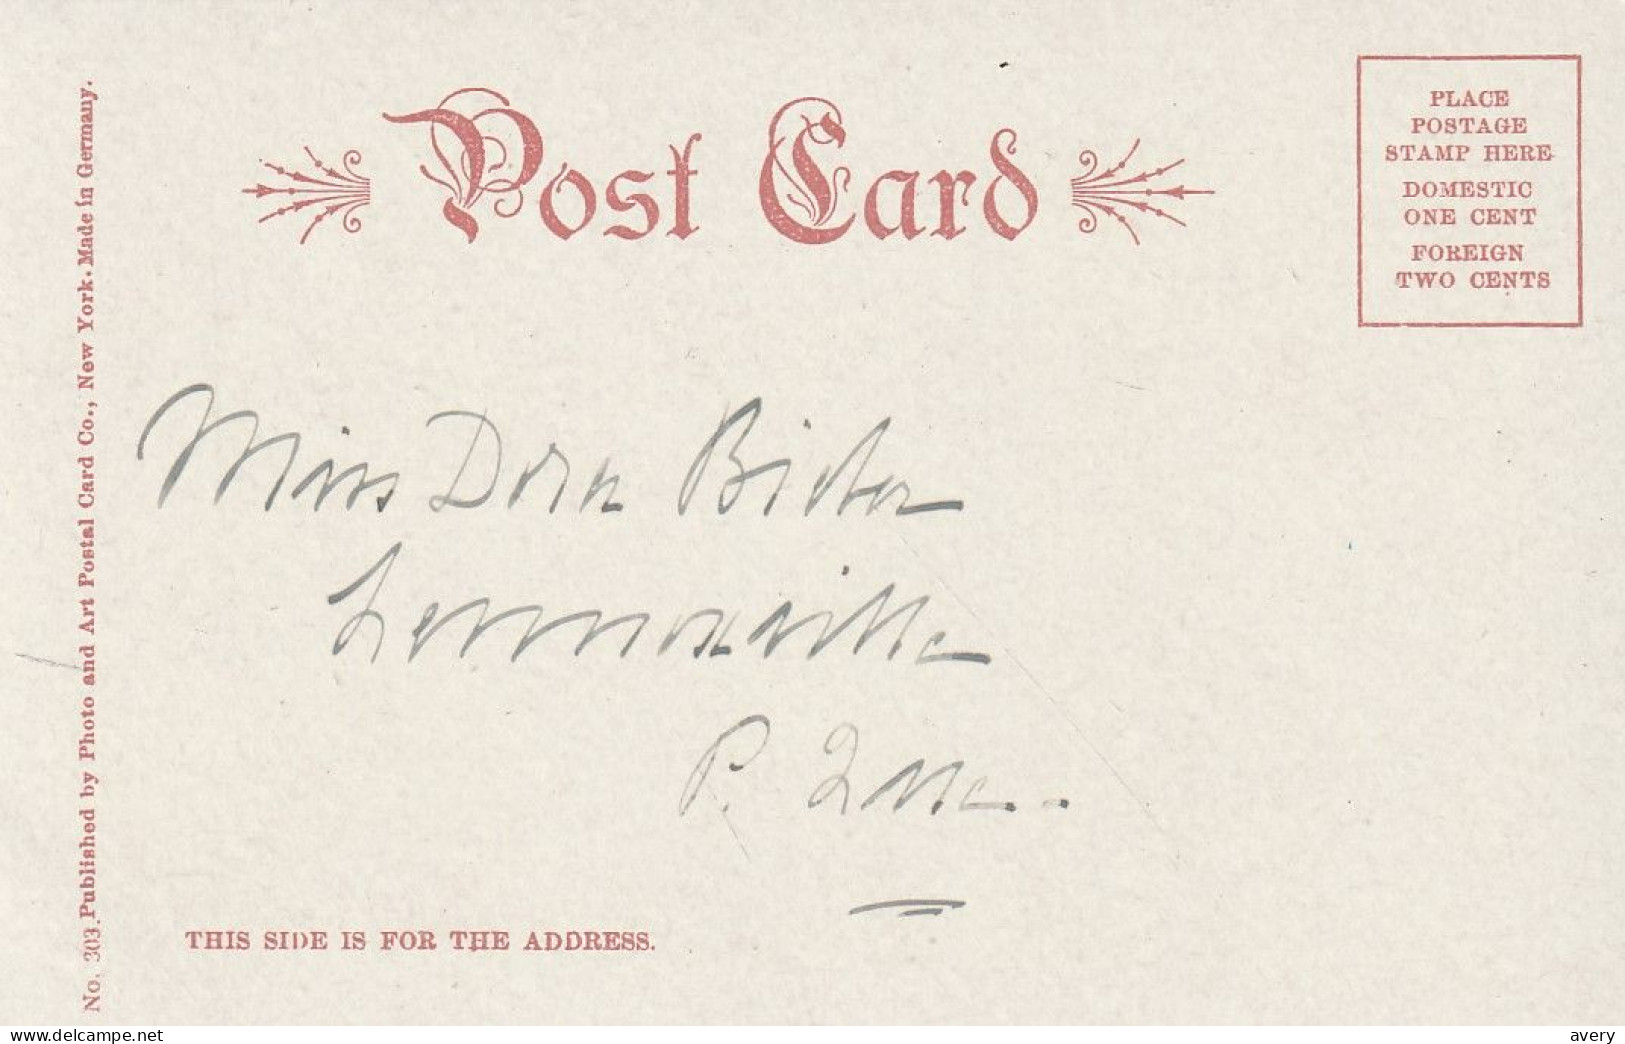 Post Card
PLACE
POSTAGE
STAMP HERE
DOMESTIC
ONE CENT
FOREIGN
TWO CENTS
No. 303. Published by Photo and Art Postal Card Co., New York. Made in Germany.
Miss Dora
Lennoxville
P. Que.
THIS SIDE IS FOR THE ADDRESS.
www.delcampe.net
avery